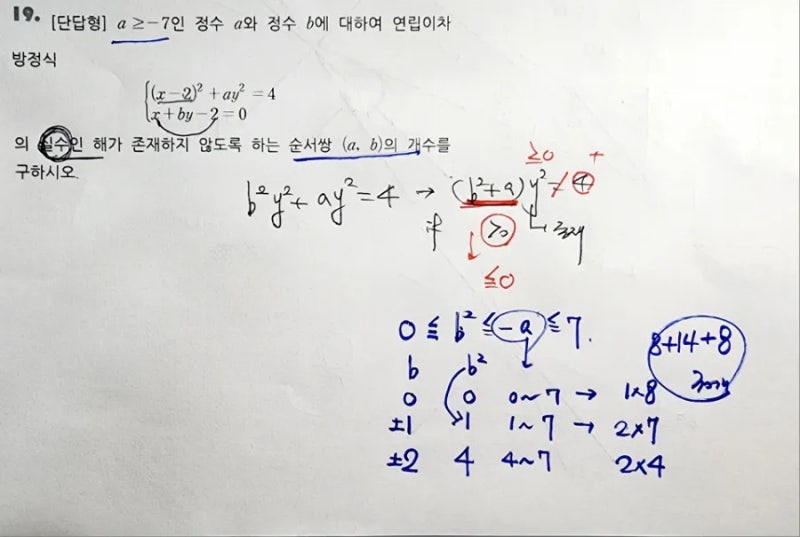 19. [단답형] a ≥ -7인 정수 a와 정수 b에 대하여 연립이차
방정식
(x-2)² + ay² = 4
x + by - 2 = 0
의 실수인 해가 존재하지 않도록 하는 순서쌍 (a, b)의 개수를
구하시오.
≥0 +
b²y² + ay² = 4 → (b²+a)y² = 4
if >0
≤0
0 ≤ b² ≤ -a ≤ 7.
8+14+8
b b²
0 0 0~7 → 1×8
±1 1 1~7 → 2×7
±2 4 4~7 2×4